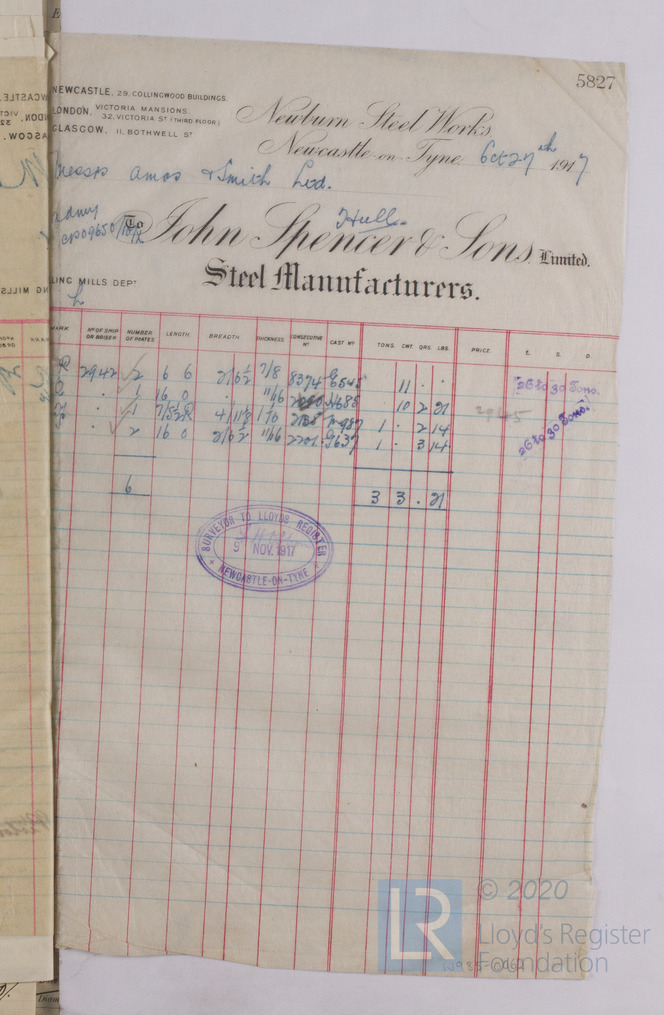 5827
NEWCASTLE, 29, COLLINGWOOD BUILDINGS.
LONDON, VICTORIA MANSIONS.
32, VICTORIA ST (THIRD FLOOR)
GLASGOW, 11, BOTHWELL ST
Newburn Steel Works
Newcastle-on-Tyne, Oct 27th 1917
Messrs Amos & Smith Ltd.
Hull.
To John Spencer & Sons Limited.
Steel Manufacturers.
LING MILLS DEPT
MARK NO OF SHIP OR BOILER NUMBER OF PLATES LENGTH BREADTH THICKNESS CONSECUTIVE No CAST No TONS. CWT. QRS. LBS. PRICE £. S. D.
2942 2 6 6 2/6½ 7/8 8374 6545 11 . . 26 to 30 Tons.
" 1 16 0 " 11/16 10 2 21
" 1 1 . 2 14 26 to 30 Tons.
" 2 16 0 2/6½ 11/16 2201 9637 1 . 3 14
6 3 3 . 21
SURVEYOR TO LLOYDS REGISTER
9 NOV. 1917
NEWCASTLE-ON-TYNE
LR © 2020
Lloyd's Register
Foundation